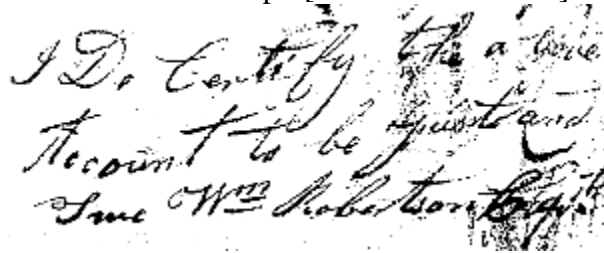 I Do Certify the a bove
Account to be gust and
True Wm Robertson